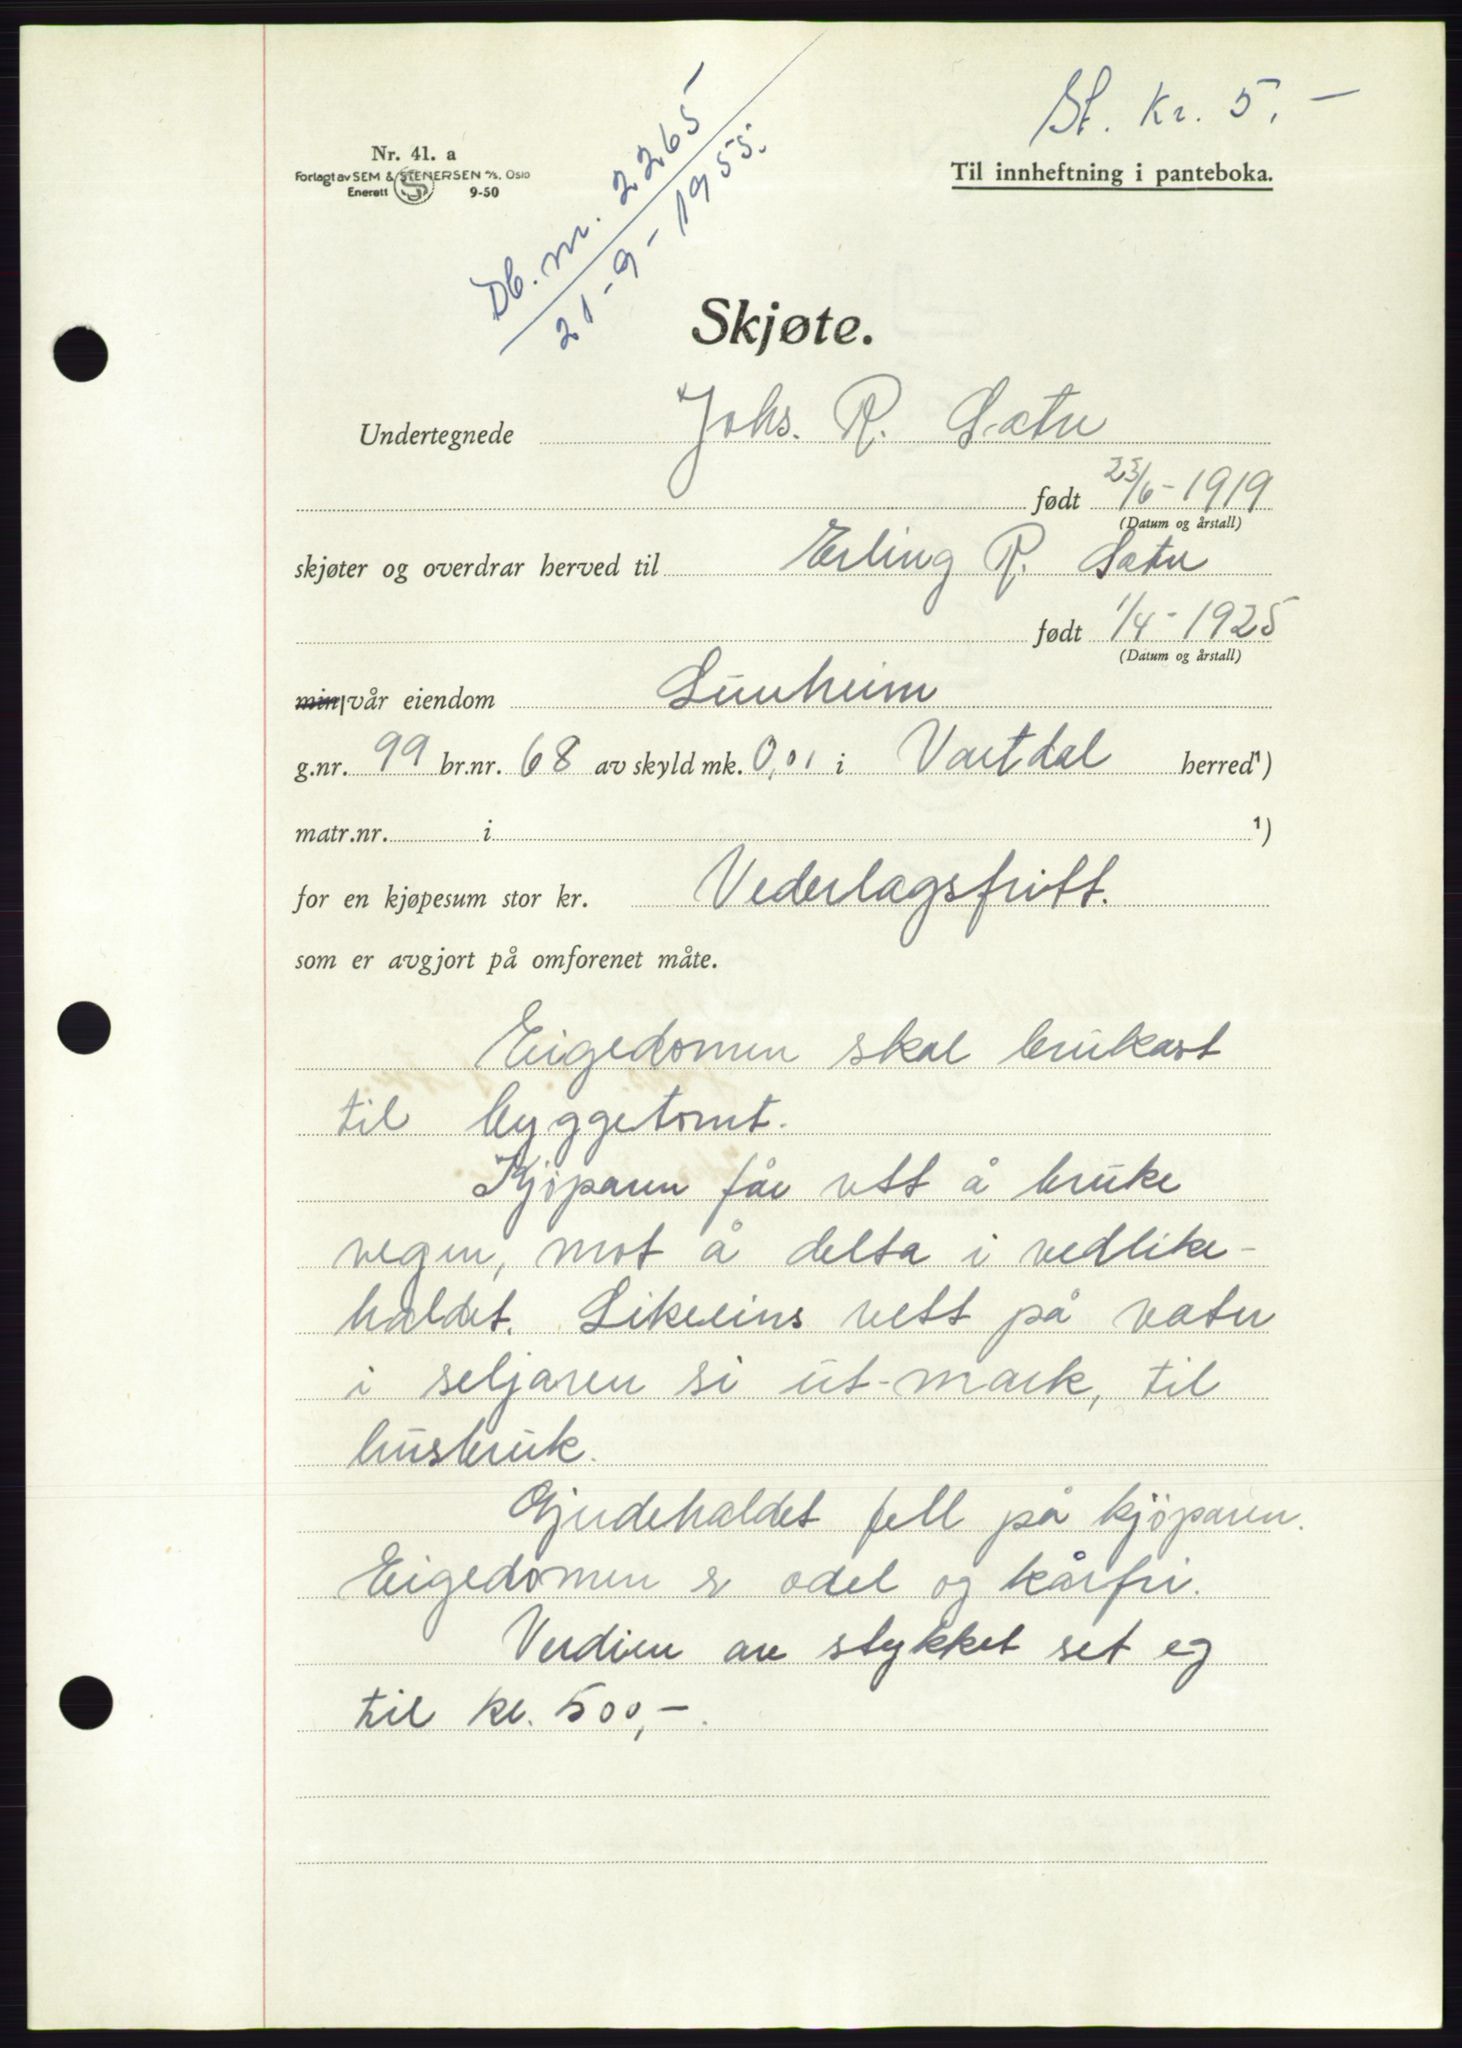 St. Kr. 5.-
Nr. 41. a
Forlagt av SEM & STENERSEN A/S. Oslo
Enerett S 9-50
Til innheftning i panteboka.
Db. nr. 2265
21-9-1955.
Skjøte.
Undertegnede Johs. R. Sætre
født 23/6-1919
(Datum og årstall)
skjøter og overdrar herved til Erling R. Sætre
født 1/4-1925
(Datum og årstall)
min/vår eiendom
g.nr. 99 br.nr. 68 av skyld mk. 0,01 i Vartdal herred ¹)
matr.nr. i ¹)
for en kjøpesum stor kr. Vederlagsfritt.
som er avgjort på omforenet måte.
Eigedomen skal brukast
til byggetomt.
Kjøparen får rett å bruke
vegen, mot å delta i vedlike-
haldet. Likeeins rett på vatn
i seljaren si ut-mark, til
husbruk.
Gjerdehaldet fell på kjöparen.
Eigedomen er odel og kårfri.
Verdien av stykket set eg
til kr. 500,-.